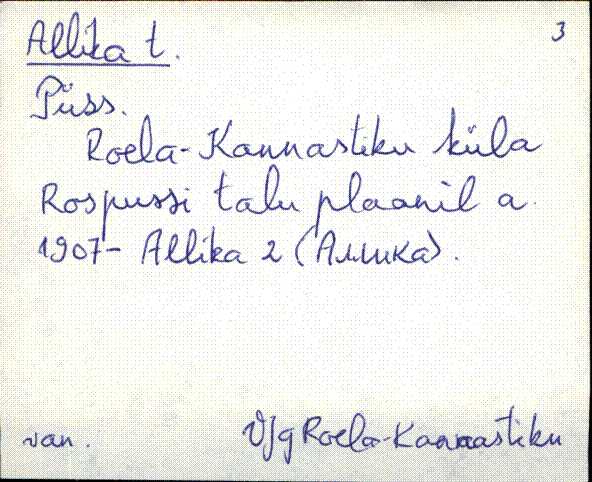 Allika t. 3
Püss.
Roela-Kannastiku küla
Rospussi talu plaanil a.
1907 - Allika 2 (Аллика).
van. VJg Roela-Kannastiku